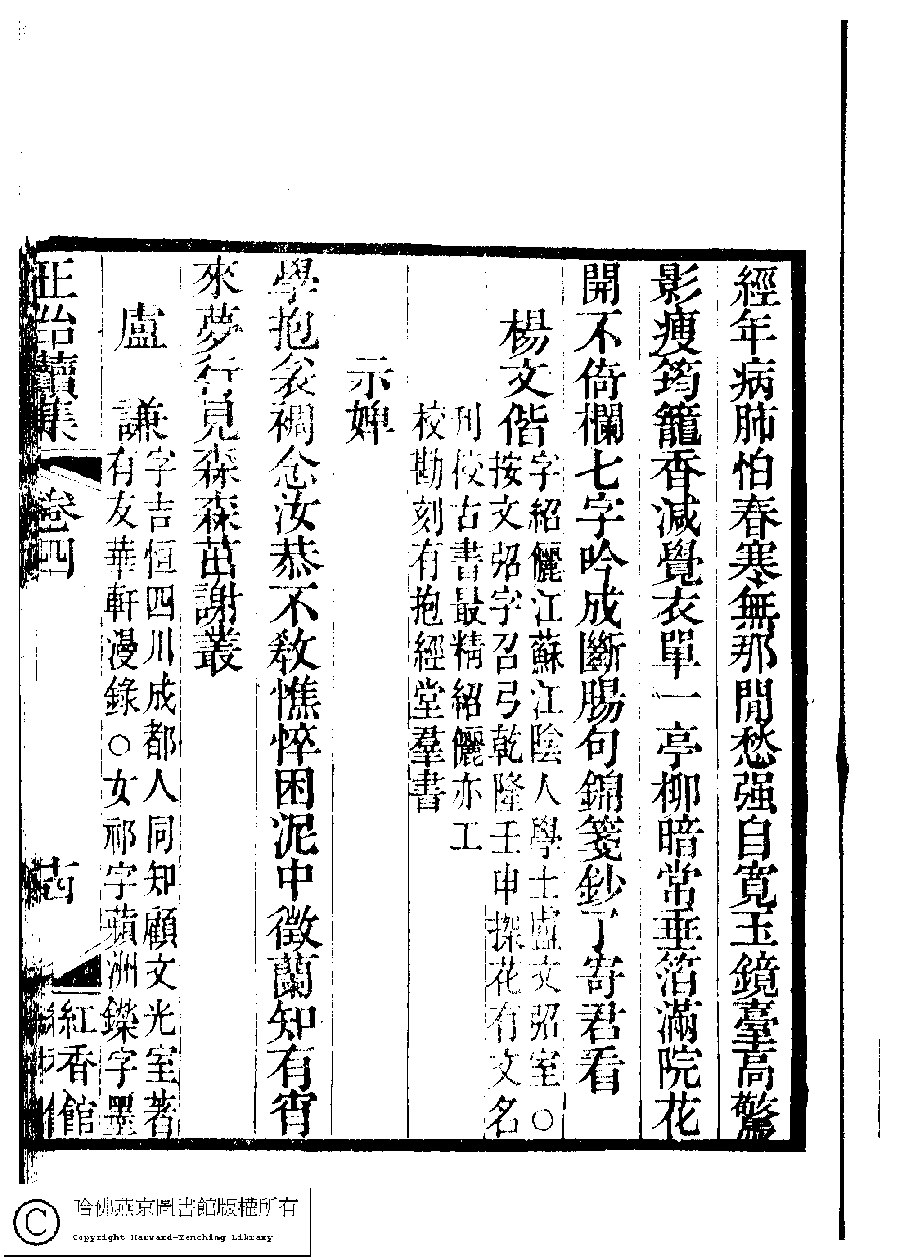 經年病肺怕春寒無那閒愁强自寛玉鏡臺高驚
影瘦筠籠香減覺衣單一亭柳暗常垂箔滿院花
開不倚欄七字吟成斷腸句錦箋鈔了寄君看
楊文偕
字紹儷江蘇江陰人學士盧文弨室○
按文弨字召弓乾隆壬申探花有文名
刊佼古書最精紹儷亦工
校勘刻有抱經堂羣書
示婢
學抱衾裯念汝恭不敎憔悴困泥中徵蘭知有宵
來夢行見森森茁謝叢
盧謙
字吉恒四川成都人同知顧文光室著
有友華軒漫錄○女祁字蘋洲鑠字墨
正始續集
卷四
紅香館
哈佛燕京圖書館版權所有
Copyright Harvard-Yenching Library